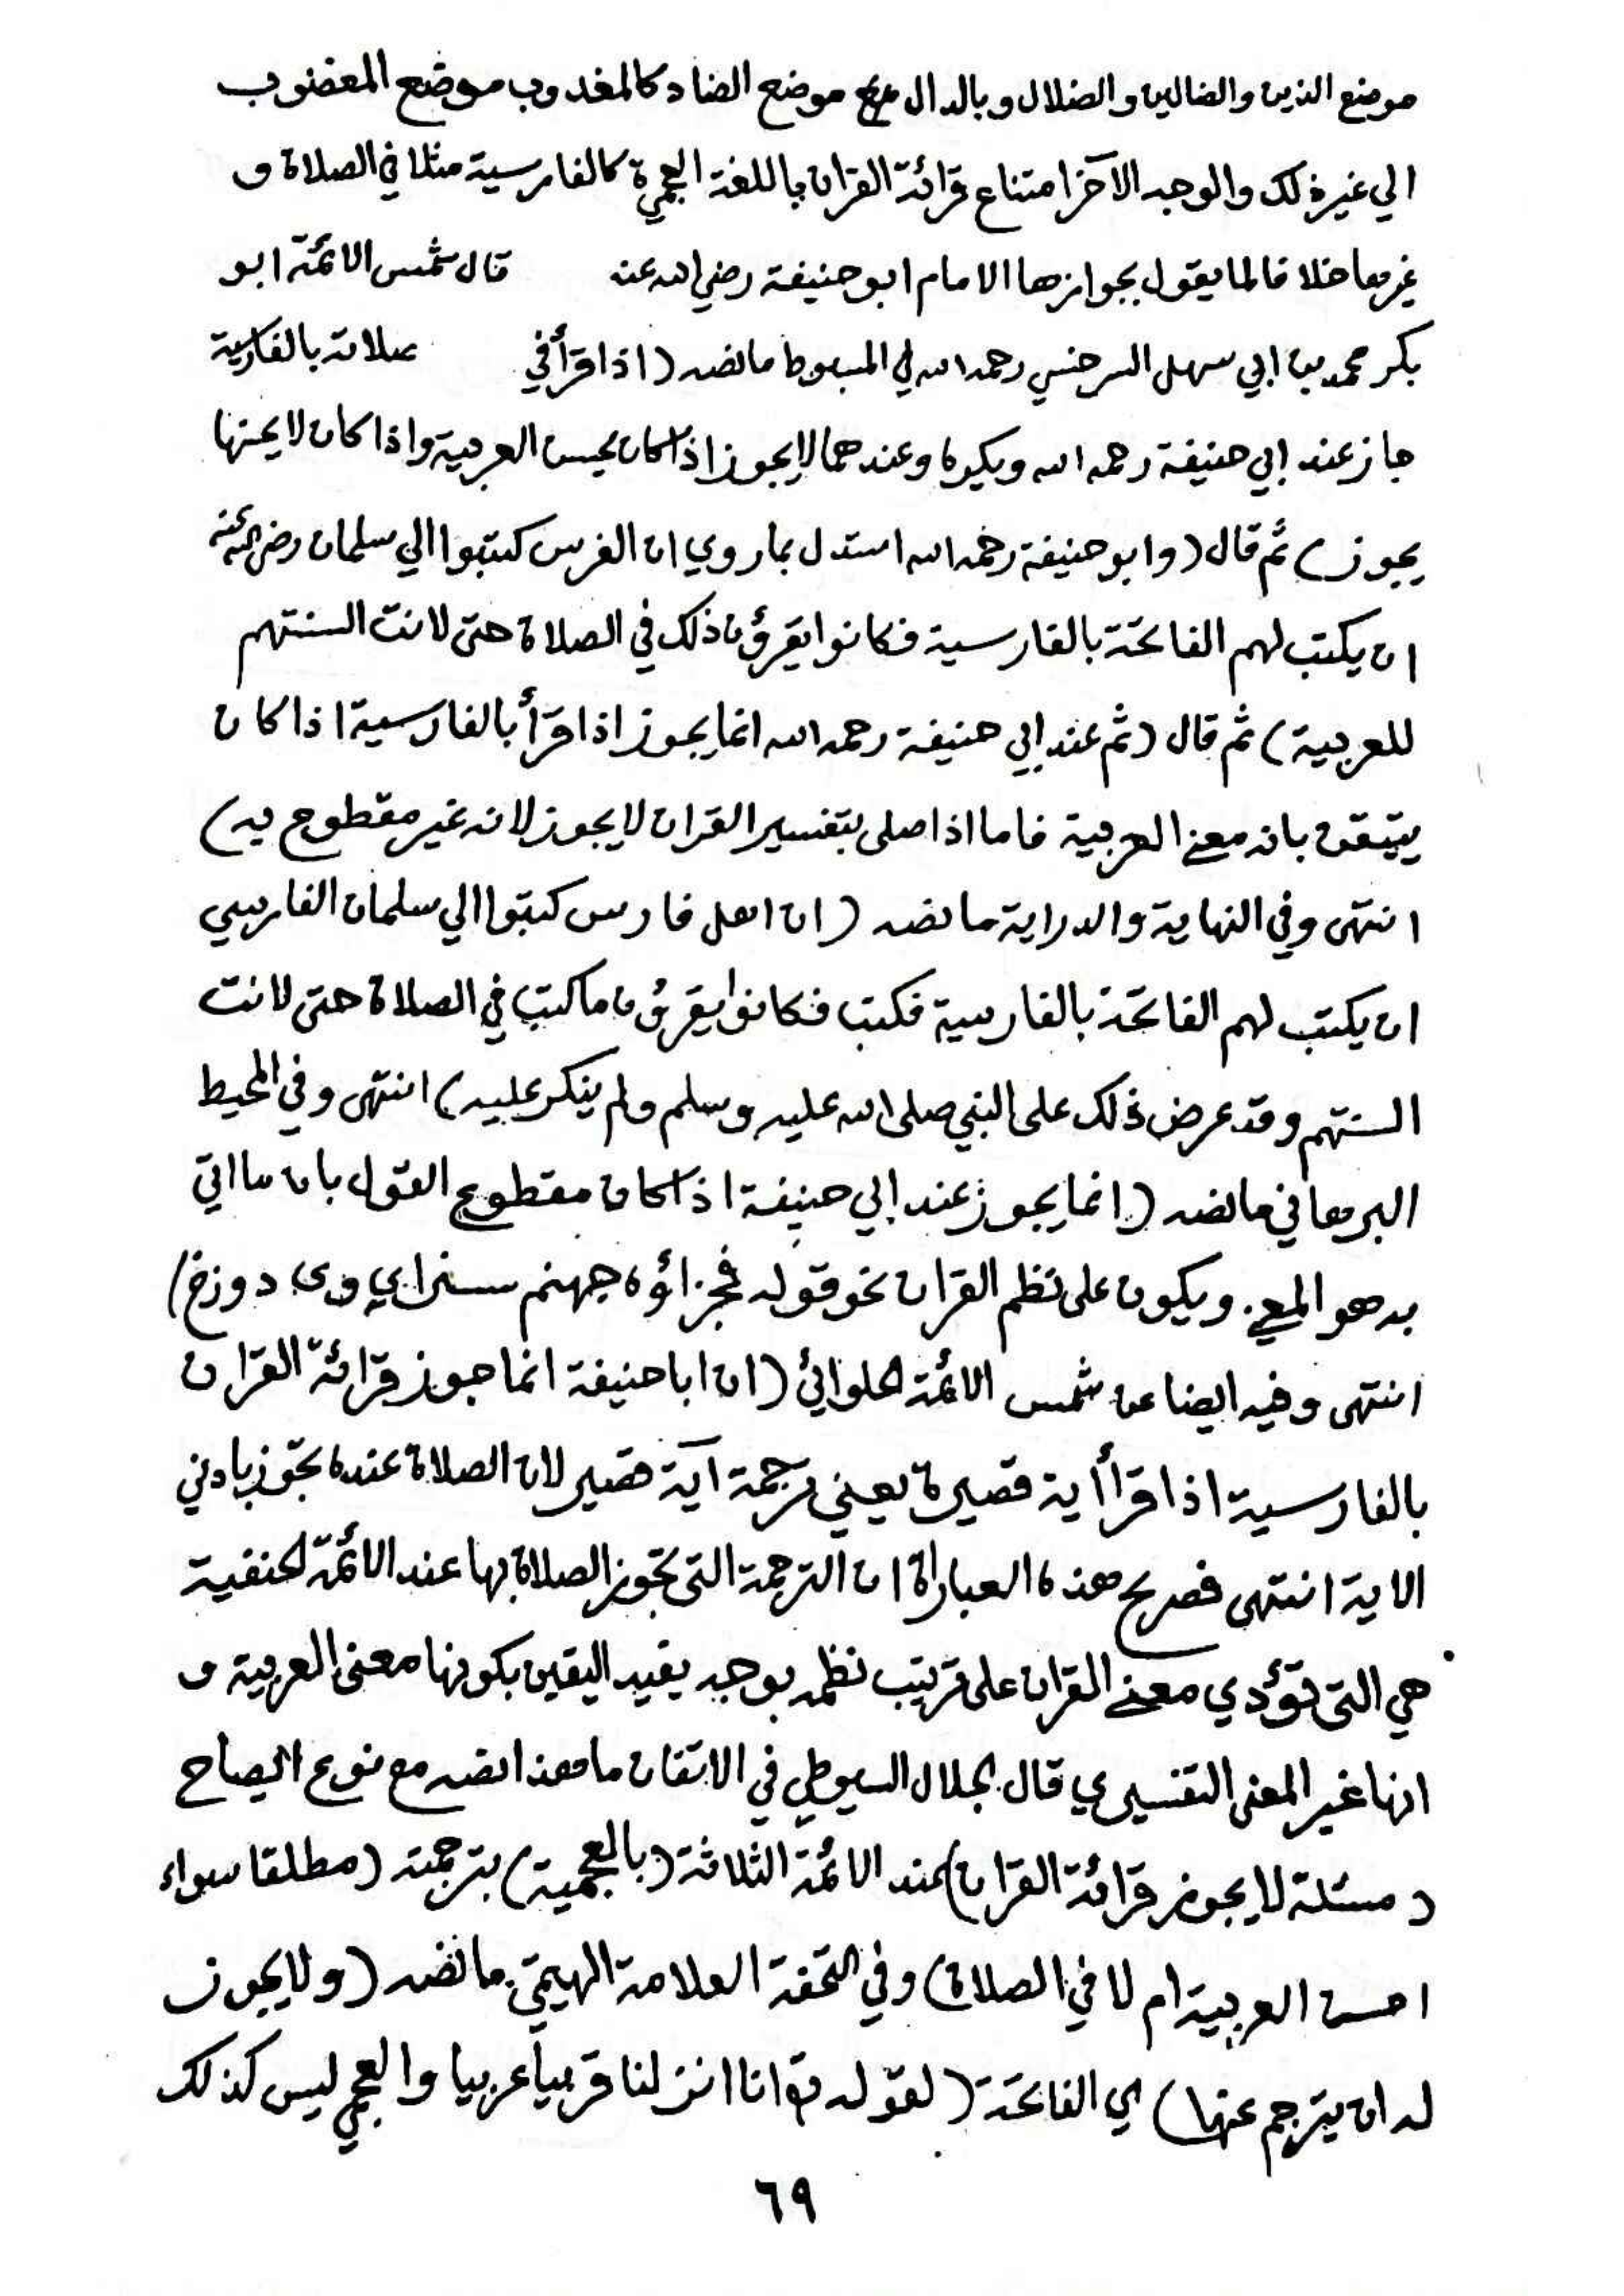 موضع الذين والضالين والضلال وبالدال موضع الضاد كالمغدوب موضع المغضوب
الي غير ذلك والوجه الآخر امتناع قرائة القران باللغة العجمية كالفارسية مثلا في الصلاة و
غيرها خلافا لما يقول بجوازها الامام ابو حنيفة رضي الله عنه قال شمس الائمة ابو
بكر محمد بن ابي سهل السرخسي رحمه الله في المبسوط ما نصه (اذا قرأ في صلاته بالفارسية
جاز عند ابي حنيفة رحمه الله ويكره وعندهما لا يجوز اذا كان يحسن العربية واذا كان لا يحسنها
يجوز) ثم قال (وابو حنيفة رحمه الله استدل بما روي ان الفرس كتبوا الي سلمان رضي الله عنه
ان يكتب لهم الفاتحة بالفارسية فكانوا يقرؤن ذلك في الصلاة حتى لانت السنتهم
للعربية) ثم قال (ثم عند ابي حنيفة رحمه الله انما يجوز اذا قرأ بالفارسية اذا كان
يتيقن بانه معنى العربية فاما اذا صلى بتفسير القران لا يجوز لانه غير مقطوع به)
انتهى وفي النهاية والدراية ما نصه (ان اهل فارس كتبوا الي سلمان الفارسي
ان يكتب لهم الفاتحة بالفارسية فكتب فكانوا يقرؤن ما كتب في الصلاة حتى لانت
السنتهم وقد عرض ذلك على النبي صلى الله عليه وسلم ولم ينكر عليه) انتهى وفي المحيط
البرهاني ما نصه (انما يجوز عند ابي حنيفة اذا كان مقطوع القول بان ما اتي
به هو المعنى ويكون على نظم القران نحو قوله فجزاؤه جهنم سزاي وى دوزخ)
انتهى وفيه ايضا عن شمس الائمة الحلوائي (ان ابا حنيفة انما جوز قرائة القران
بالفارسية اذا قرأ أية قصيرة يعني ترجمة آية قصير لان الصلاة عنده تجوز بادني
الاية انتهى فصريح هذه العباراة ان الترجمة التى تجوز الصلاة بها عند الائمة الحنفية
هي التى تؤدي معنى القران على ترتيب نظمه بوجه يفيد اليقين بكونها معنى العربية و
انها غير المعنى التفسيري قال الجلال السيوطي في الاتقان ما هذا نصه مع نوع ايضاح
(مسئلة لا يجوز قرائة القران) عند الائمة الثلاثة (بالعجمية) بترجمته (مطلقا سواء
احسن العربية ام لا في الصلاة) وفي التحفة العلامة الهيتمي ما نصه (ولا يجوز
له ان يترجم عنها) اي الفاتحة (لقوله تع انا انزلنا قربيأ عربيا والعجمي ليس كذلك
٦٩